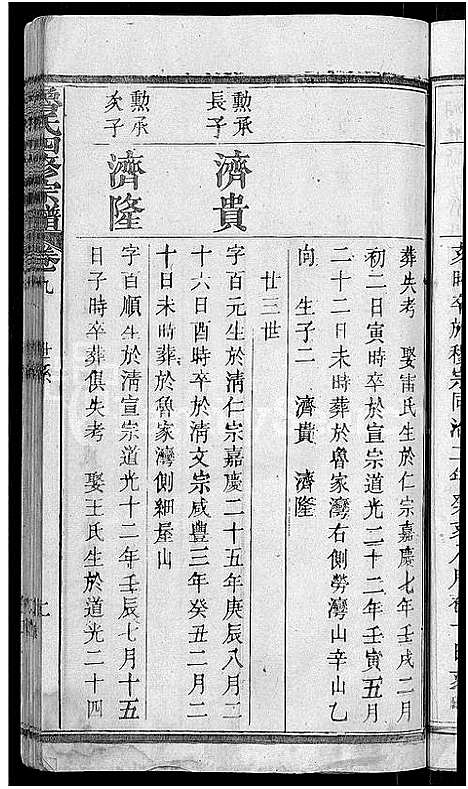 葬失考　娶雷氏生於仁宗嘉慶七年壬戌二月
初二日寅時卒於宣宗道光二十二年壬寅五月
二十二日未時葬於魯家灣右側勞灣山辛山乙
向　生子二　濟貴　濟隆
廿三世
勲承
長子
濟貴
字百元生於清仁宗嘉慶二十五年庚辰八月二
十六日酉時卒於清文宗咸豐三年癸丑二月二
十日未時葬於魯家灣側細屋山
勲承
次子
濟隆
字百順生於清宣宗道光十二年壬辰七月十五
日子時卒葬俱失考　娶王氏生於道光二十四
氏四修宗譜
卷九
世系